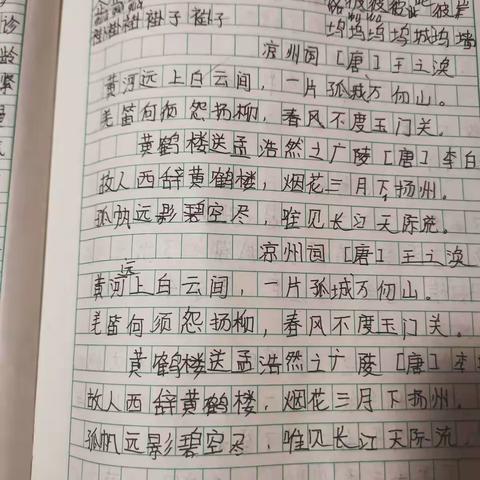 褂褂褂褂子褂子
坞坞坞坞城坞墙
凉州词 [唐] 王之涣
黄河远上白云间，一片孤城万仞山。
羌笛何须怨扬柳，春风不度玉门关。
黄鹤楼送孟浩然之广陵 [唐] 李白
故人西辞黄鹤楼，烟花三月下扬州。
孤帆远影碧空尽，唯见长江天际流。
凉州词 [唐] 王之涣
黄河远上白云间，一片孤城万仞山。
羌笛何须怨扬柳，春风不度玉门关。
黄鹤楼送孟浩然之广陵 [唐] 李
故人西辞黄鹤楼，烟花三月下扬州。
孤帆远影碧空尽，唯见长江天际流。